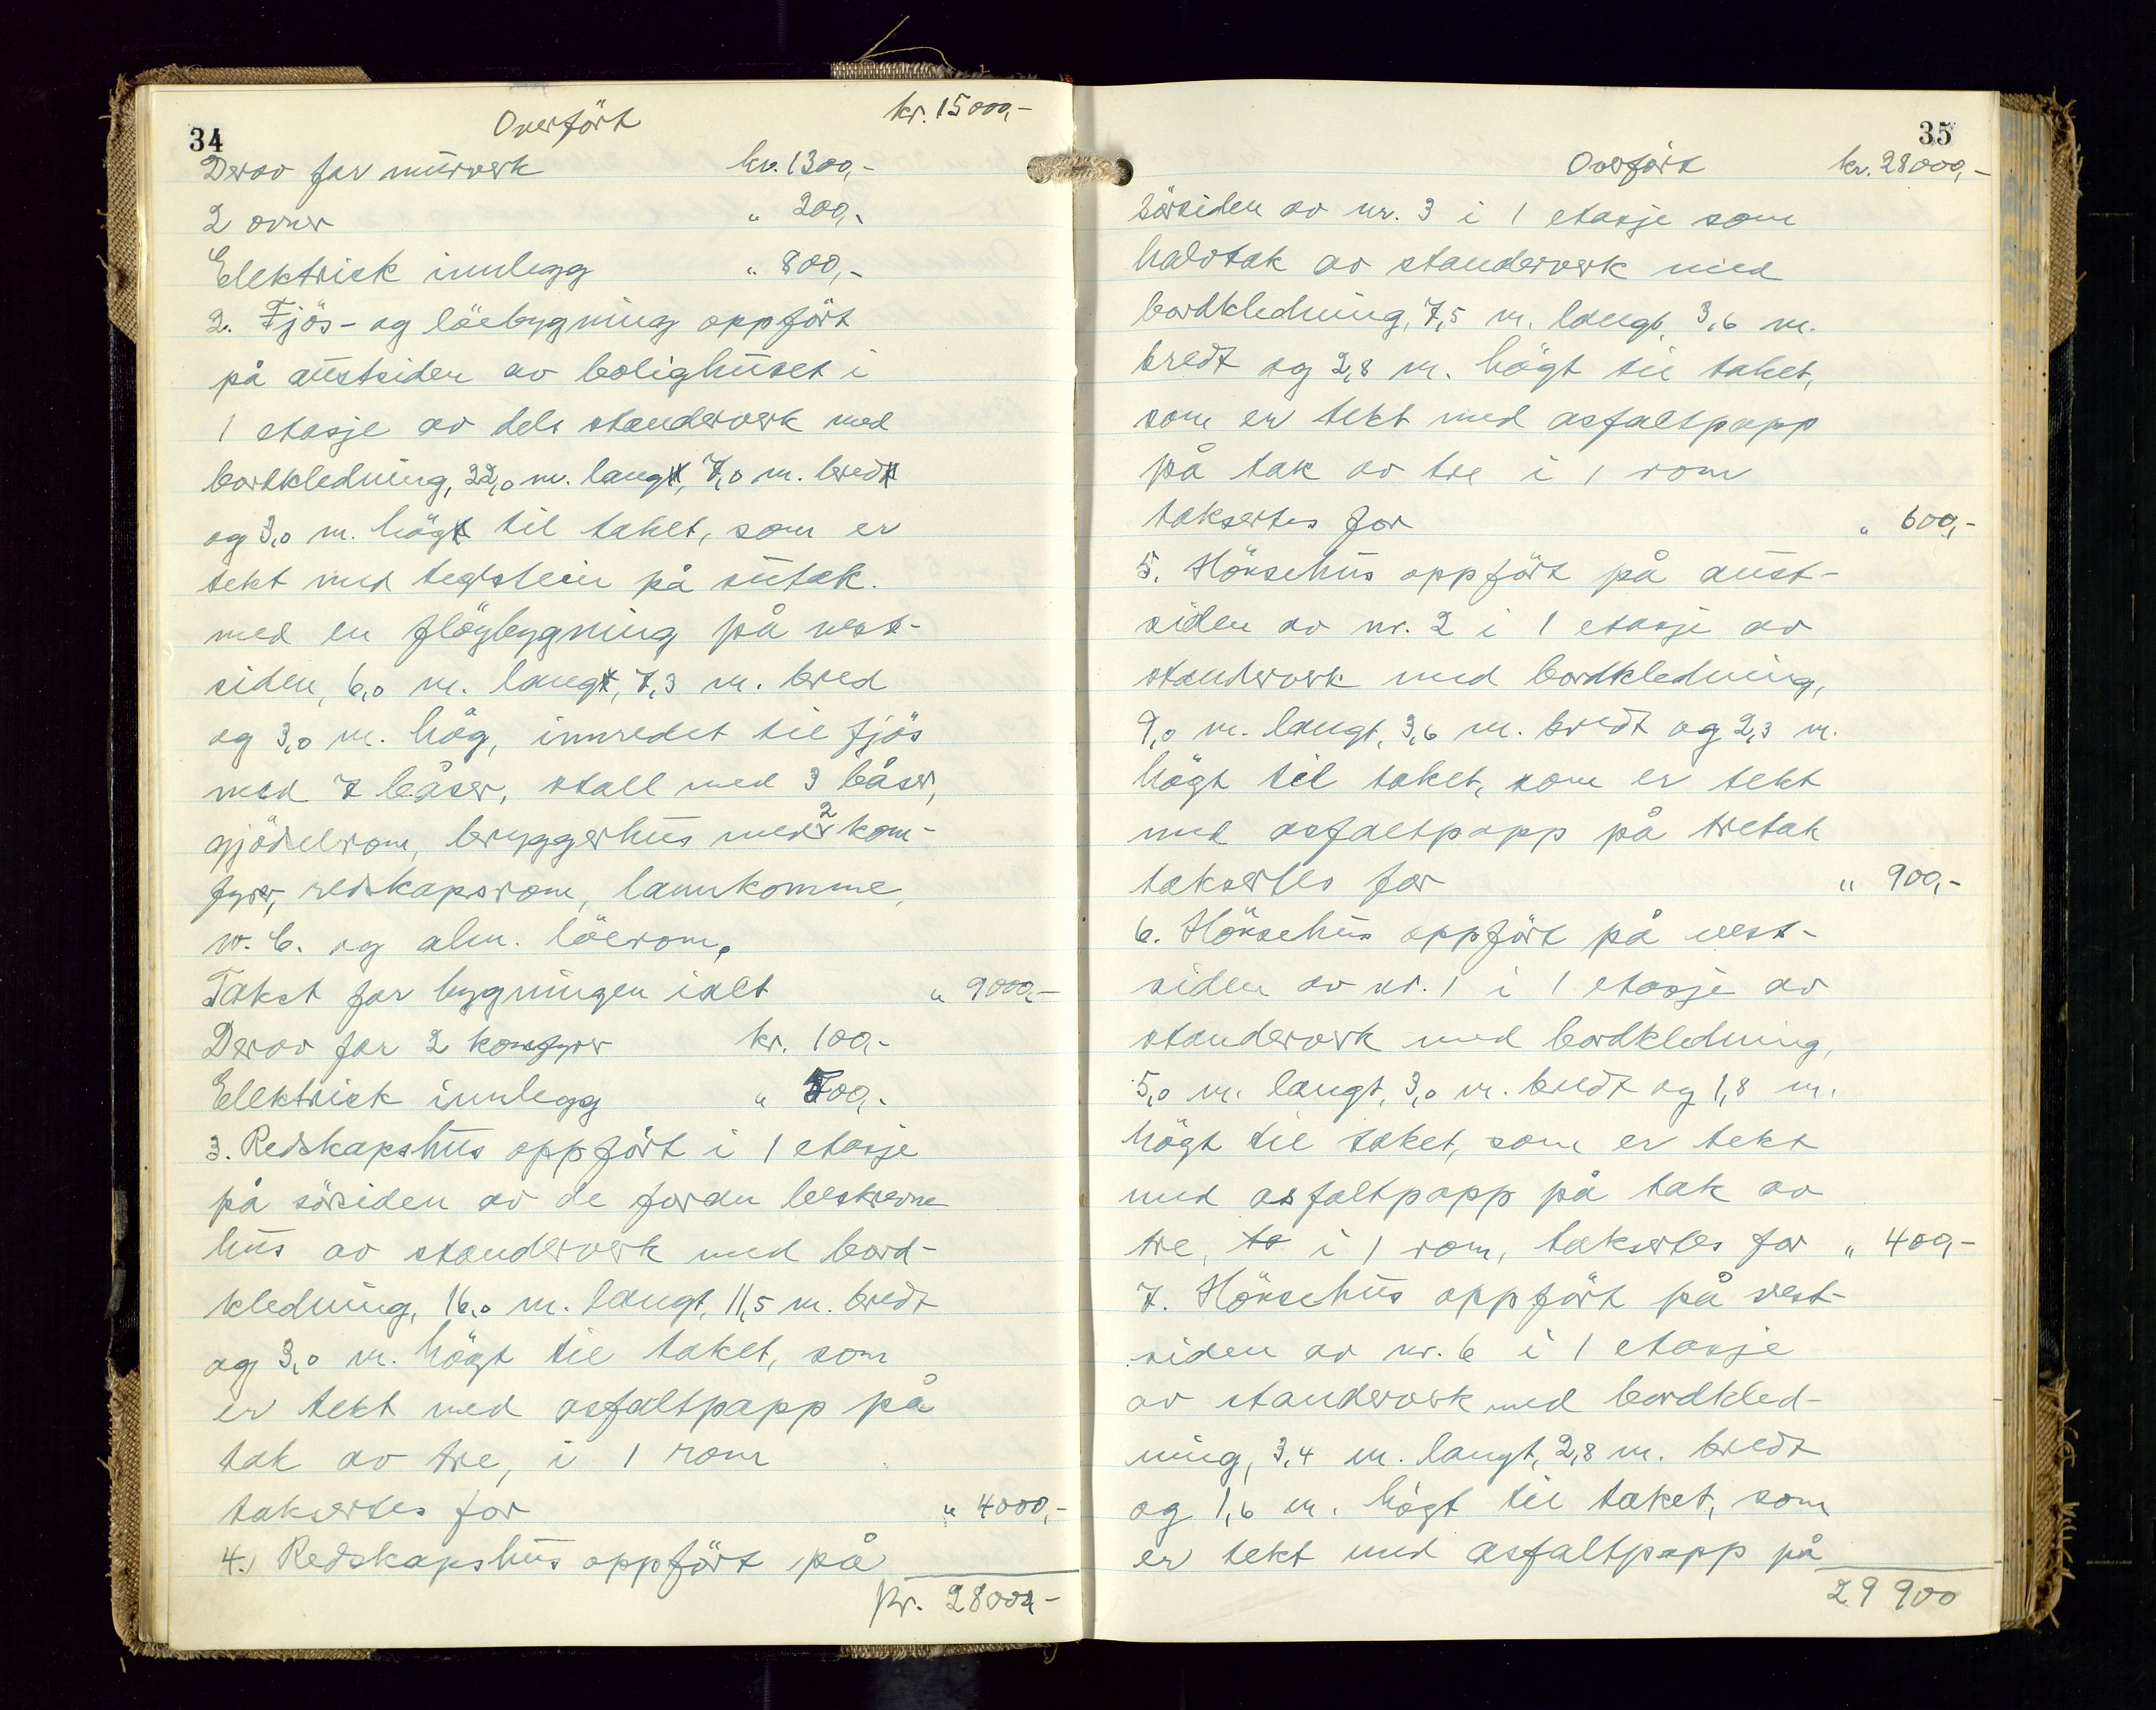 34
Overfört kr. 15000,-
Derav for murverk kr. 1300,-
2 ovner " 200,-
Elektrisk innlegg " 800,-
2. Fjös- og löebygning oppfört
på austsiden av bolighuset i
1 etasje av dels standerverk med
bordkledning, 22,0 m. lang, 7,0 m. bred
og 3,0 m. hög til taket, som er
tekt med teglstein på sutak.
med en flöybygning på vest-
siden, 6,0 m. lang, 7,3 m. bred
og 3,0 m. hög, innredet til fjös
med 7 båser, stall med 3 båser,
gjödselrom, bryggerhus med 2 kom-
fyrer, redskapsrom, lannkomme,
w.c. og alm. löerom.
Takst for bygningen ialt " 9000,-
Derav for 2 komfyrer kr. 100,-
Elektrisk innlegg " 700,-
3. Redskapshus oppfört i 1 etasje
på sörsiden av de foran beskrevne
hus av standerverk med bord-
kledning, 16,0 m. langt, 11,5 m. bredt
og 3,0 m. högt til taket, som
er tekt med asfaltpapp på
tak av tre, i 1 rom
taksertes for " 4000,-
4. Redskapshus oppfört på
Kr. 28000,-
35
Overfört kr. 28000,-
sörsiden av nr. 3 i 1 etasje som
halvtak av standerverk med
bordkledning, 7,5 m. langt, 3,6 m.
bredt og 2,8 m. högt til taket,
som er tekt med asfaltpapp
på tak av tre i 1 rom
taksertes for " 600,-
5. Hönsehus oppfört på aust-
siden av nr. 2 i 1 etasje av
standerverk med bordkledning,
9,0 m. langt, 3,6 m. bredt og 2,3 m.
högt til taket, som er tekt
med asfaltpapp på tretak
taksertes for " 900,-
6. Hönsehus oppfört på vest-
siden av nr. 1 i 1 etasje av
standerverk med bordkledning,
5,0 m. langt, 3,0 m. bredt og 1,8 m.
högt til taket, som er tekt
med asfaltpapp på tak av
tre, ta i 1 rom, taksertes for " 400,-
7. Hönsehus oppfört på vest-
siden av nr. 6 i 1 etasje
av standerverk med bordkled-
ning, 3,4 m. langt, 2,8 m. bredt
og 1,6 m. högt til taket, som
er tekt med asfaltpapp på
29 900